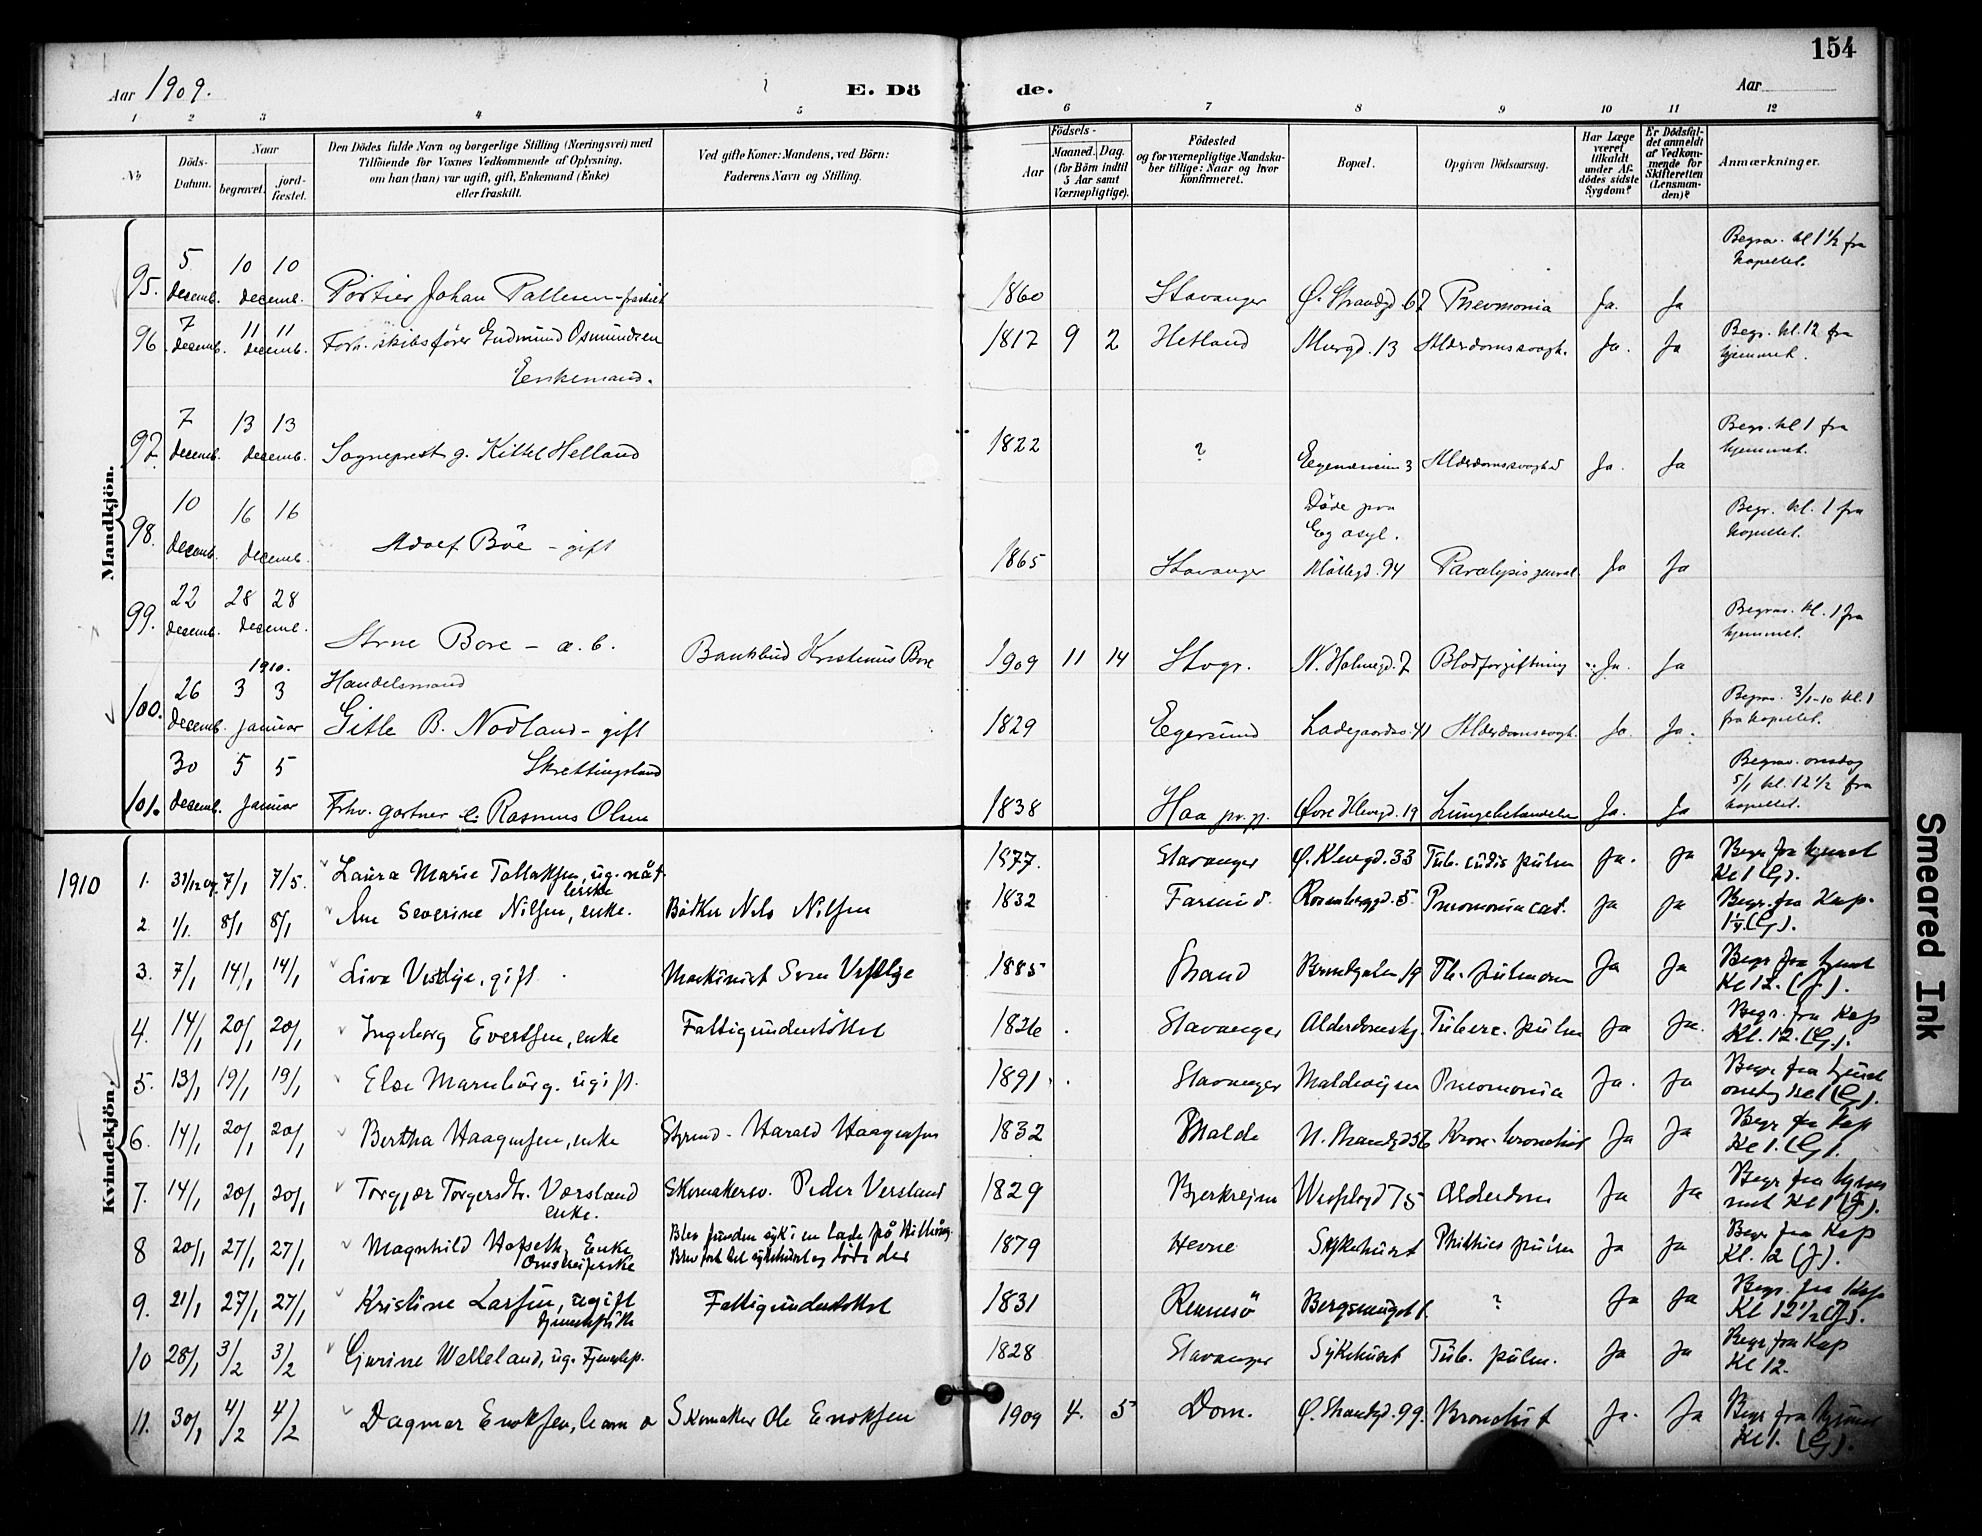 154
Aar 1909.
E. Dö de.
Aar
1 2 3 4 5 6 7 8 9 10 11 12
No
Döds-Datum.
Naar
begravet.
jord-fæstet.
Den Dödes fulde Navn og borgerlige Stilling (Næringsvei) med
Tilföiende for Voxnes Vedkommende af Oplysning,
om han (hun) var ugift, gift, Enkemand (Enke)
eller fraskilt.
Ved gifte Koner: Mandens, ved Börn:
Faderens Navn og Stilling.
Födsels-
Aar
Maaned. Dag.
(for Börn indtil
5 Aar samt
Værnepligtige).
Födested
og for værnepligtige Mandska-
ber tillige: Naar og hvor
konfirmeret.
Bopæl.
Opgiven Dödsaarsag.
Har Læge
været
tilkaldt
under Af-
dödes sidste
Sygdom?
Er Dödsfal-
det anmeldt
af Vedkom-
mende for
Skifteretten
(Lensman-
den)?
Anmærkninger.
Mandkjön.
95. 5 decemb. 10 10 decemb. Portier Johan Pallesen 1860 Stavanger Ø. Strandgd 67 Pneumonia Ja. Ja Begrav. kl 1 1/2 fra kapellet.
96 7 decemb. 11 11 decemb. Forh. skibsfører Gudmund Osmundsen Enkemand. 1817 9 2 Hetland Murgd. 13 Alderdomssvagh. Ja. Ja Begr. kl. 12 fra hjemmet.
97. 7 decemb. 13 13 decemb. Sogneprest g. Kittel Helland 1822 ? Eegenesveien 3 Alderdomssvaghed Ja. Ja Begr. kl 1 fra hjemmet.
98. 10 decemb. 16 16 decemb. Adolf Böe - gift 1865 Stavanger Døde paa Eg asyl. Møllegd. 94 Paralysis general. Ja Ja Begr. kl. 1 fra kapellet.
99. 22 decemb. 28 28 decemb. Arne Bore - æ. b. Bankbud Kristinus Bore 1909 11 14 Stvgr. N. Holmegd. 7 Blodforgiftning Ja. Ja Begrav. kl. 1 fra hjemmet.
100. 26 decemb. 1910. 3 3 januar Handelsmand Gitle B. Nodland - gift 1829 Egersund Ladegaardsv. 41 Alderdomssvagh. Ja. Ja. Begrav. 3/1-10 kl. 1 fra kapellet.
101. 30 decemb. 5 5 januar Skrettingsland Fhv. gartner e. Rasmus Olsen 1838 Haa pr.gj. Øvre Klevegd. 19 Lungebetændelse Ja. Ja Begrav. onsdag 5/1 kl. 12 1/2 fra kapellet.
1910
Kvindekjön.
1. 31/12 09. 7/1 7/5. Laura Marie Tallaksen, ug. 1877. Stavanger Ø. Klevgd. 33 Tub. pulm Ja. Ja Begr fra hjemmet Kl 1 (G).
2 1/1. 8/1 8/1 Ane Severine Nilsen, enke. Bödker Nels Nilsen 1832 Farsund. Rosenberggd. 5. Pneumonia cat. Ja Ja Begr. fra Kap. (G).
3. 7/1 14/1 14/1 Liva Vestlye, gift. Maskinist Sven Vestlye 1885 Strand Bernigaten 19 Tb. pulmonum Ja Ja Begr fra hjemmet Kl 12. (J).
4. 14/1 20/1 20/1 Ingeborg Evertsen, enke Fattigunderstöttet 1826 Stavanger Alderdomshj. Tuberc. pulm Ja Ja. Begr. fra Kap Kl. 12. (G).
5. 13/1 19/1 19/1 Else Marnburg. ugift. 1891. Stavanger Maldevigen Pneumonia Ja. Ja Begr fra hjemmet onsdag kl 1 (G).
6. 14/1 20/1 20/1 Bertha Haagensen, enke Styrmd. Harald Haagensen 1832 Malde N. Strandgd 56 Kron. bronchit Ja Ja Begr fra Kap Kl 1. (G).
7. 14/1 20/1 20/1 Torgjer Torgersdtr.Værsland enke. Skomakersv. Peder Versland 1829 Bjerkrejm 75 Alderdom Ja Ja Begr fra hjemmet Kl 1 (J).
8 20/1 27/1 27/1 Magnhild Hofseth, Enke Omstreiferske Blev funden syk i en lade på Hillevåg. Blev fört til sykehuset og döde der 1879 Hevne Sykehuset Phthisis pulm Ja Ja Begr fra Kap Kl. 12 (J).
9. 21/1 27/1 27/1 Kristine Larsen, ugift tjenestepike Fattigunderstöttet 1831 Rennesö Bergsmuget 1. ? Ja Ja Begr. fra Kap Kl 12 1/2 (J).
10 28/1 3/2 3/2 Gurine Welleland, ug. Tjenestep. 1828 Stavanger Sykehuset Tub. pulm. Ja Ja Begr fra Kap Kl 12.
11. 30/1 4/2 4/2 Dagmar Enoksen, barn æ Skomaker Ole Enoksen 1909 4. 5 Dom. Ø. Strandgd. 99. Bronchit Ja. Ja Begr fra hjemmet Kl 1. (G).
Smeared Ink